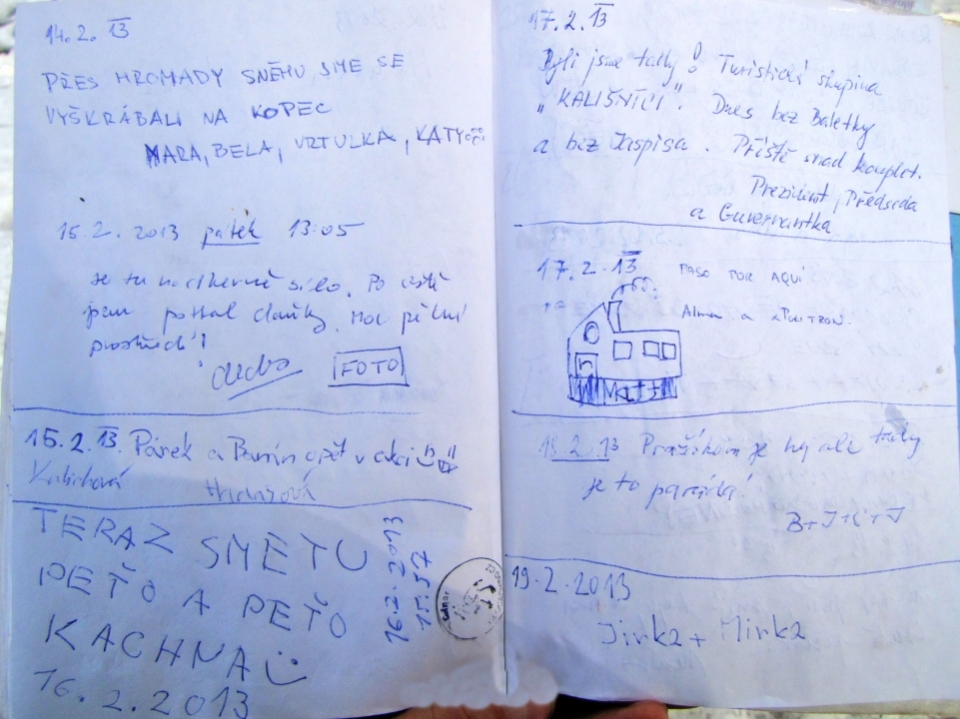 14.2.13
PŘES HROMADY SNĚHU JSME SE
VYŠKRÁBALI NA KOPEC
MARA, BELA, VRTULKA, KATY
15.2.2013 pátek 13:05
Je tu nádherné Po cestě
jsem potkal
prostředí!
FOTO
15.2.13 Párek a opět v akci
TERAZ SME TU
PEŤO A PEŤO
KACHNA
16.2.2013
16.2.2013
15.37
17.2.13
Byli jsme tady! Turistická skupina
„KALIŠNÍCI". Dnes bez Baletky
a bez Jaspisa. Příště snad komplet.
Prezident, Předseda
a Guvernantka
17.2.13 PASO POR AQUÍ
Alma a
18.2.13 je ale tady
je to paráda!
B+J+K+J
19.2.2013
Jirka + Mirka